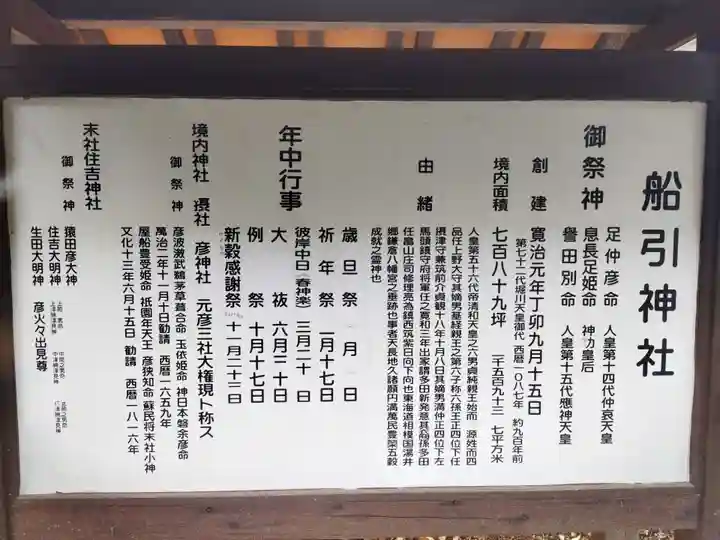 船引神社
御祭神
足仲彦命 人皇第十四代仲哀天皇
息長足姫命 神功皇后
譽田別命 人皇第十五代應神天皇
創建 寛治元年丁卯九月十五日
第七十三代堀川天皇御代 西暦一〇八七年 約九百年前
境内面積 七百八十九坪 二千五百九十三・七平方米
由緒
人皇第五十六代帝清和天皇之六男貞純親王始而 源姓而四
品任上野大守其嫡男基経親王之第六子称六孫王正四位下任
摂津守兼筑前介貞観十八年十月八日其嫡男満仲正四位下左
馬頭鎮守府将軍任之寛和三年出家謂多田新発意其裔孫多田
任畠山庄司修理亮為鎮西筑紫日向下向也東海道相模国湯井
郷鎌倉八幡宮之垂跡也事者天長地久諸願円満萬民豊楽五穀
成就之霊神也
年中行事
歳旦祭 一月一日
祈年祭 一月十七日
彼岸中日(春神楽) 三月二十一日
大祓 六月三十日
例祭 十月十七日
新穀感謝祭 十一月二十三日
境内神社 摂社 彦神社 元彦三社大権現ト称ス
御祭神 彦波激武鵜茅草葺合命 玉依姫命 神日本磐余彦命
萬治二年十一月十日勧請 西暦一六五九年
屋船豊受姫命 祇園年天王 彦狭知命 蘇民将末社小神
文化十三年六月十五日 勧請 西暦一八一六年
末社住吉神社
御祭神 猿田彦大神
住吉大明神
生田大明神 彦火々出見尊